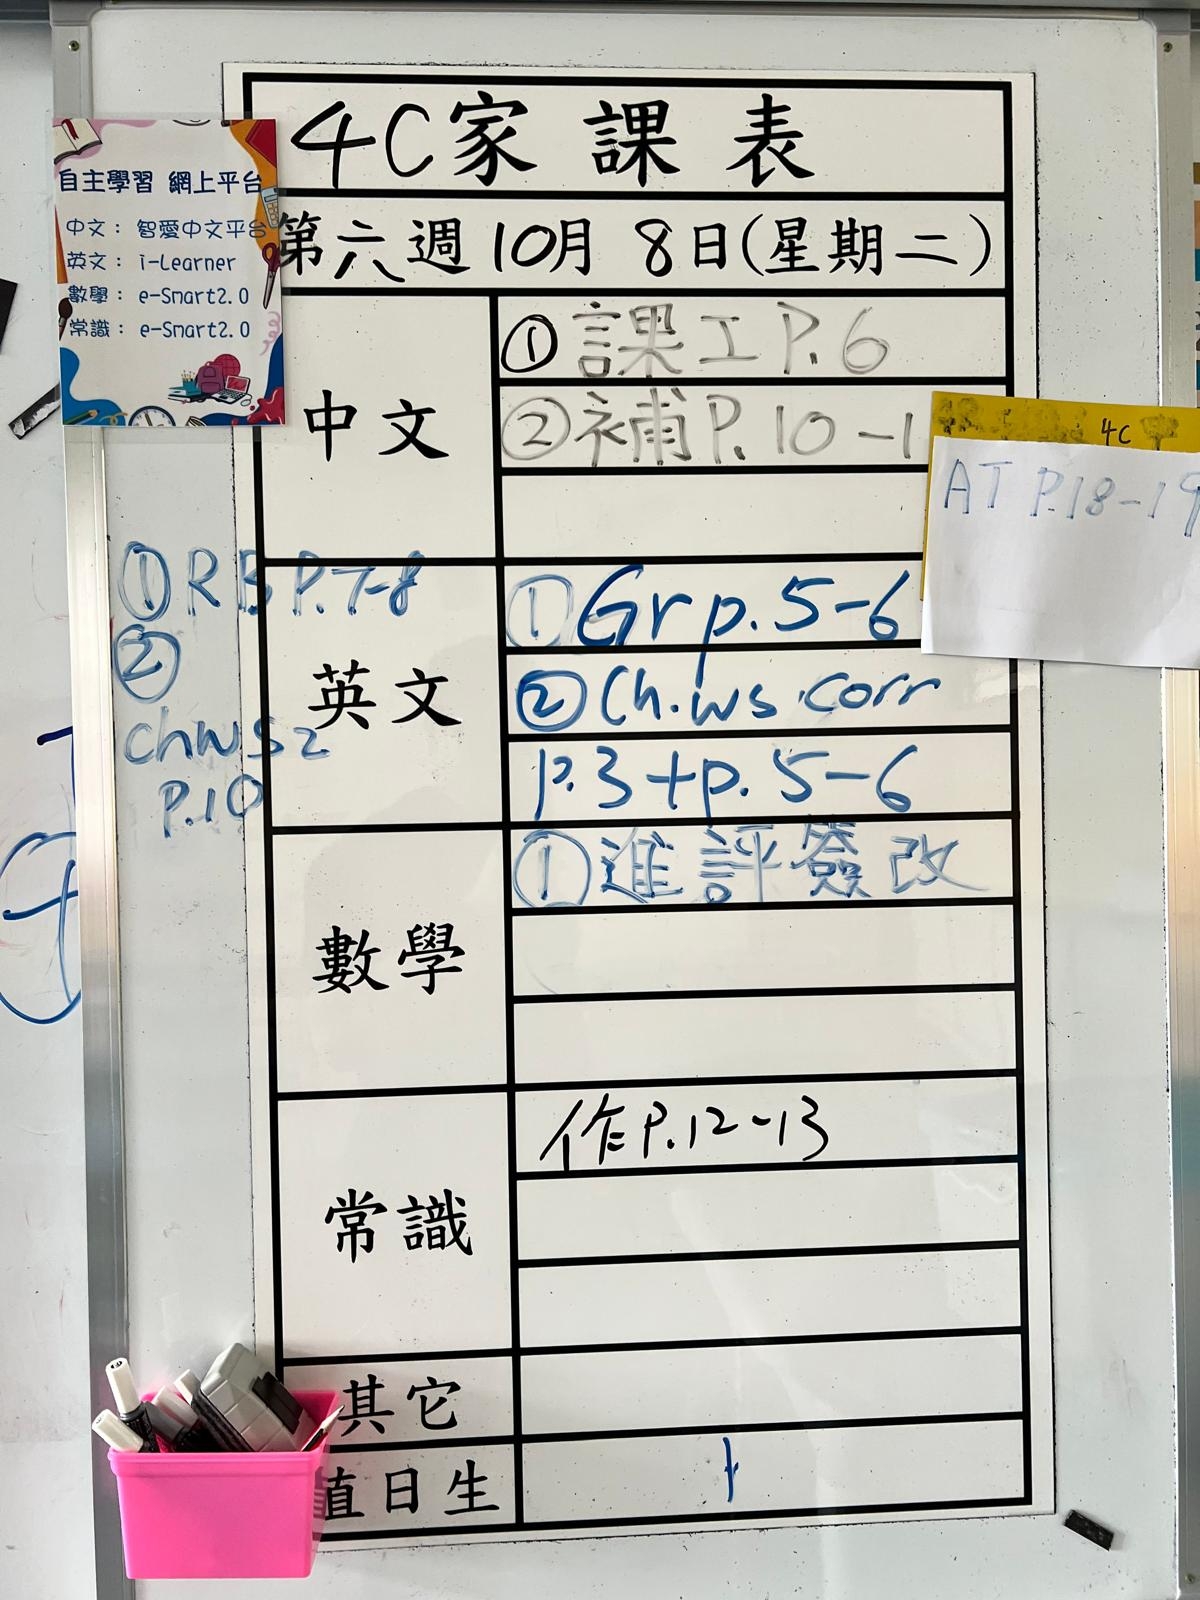 4C家課表
自主學習 網上平台
中文： 智愛中文平台
英文： i-Learner
數學： e-Smart2.0
常識： e-Smart2.0
第六週10月8日(星期二)
中文
①課工P.6
②補P.10-1
4C
AT P.18-19
①RBP.7-8
②
ChWS2
P.10
英文
①Gr p.5-6
②Ch.ws.corr
p.3+p.5-6
數學
①進評簽改
常識
作P.12-13
其它
值日生
1